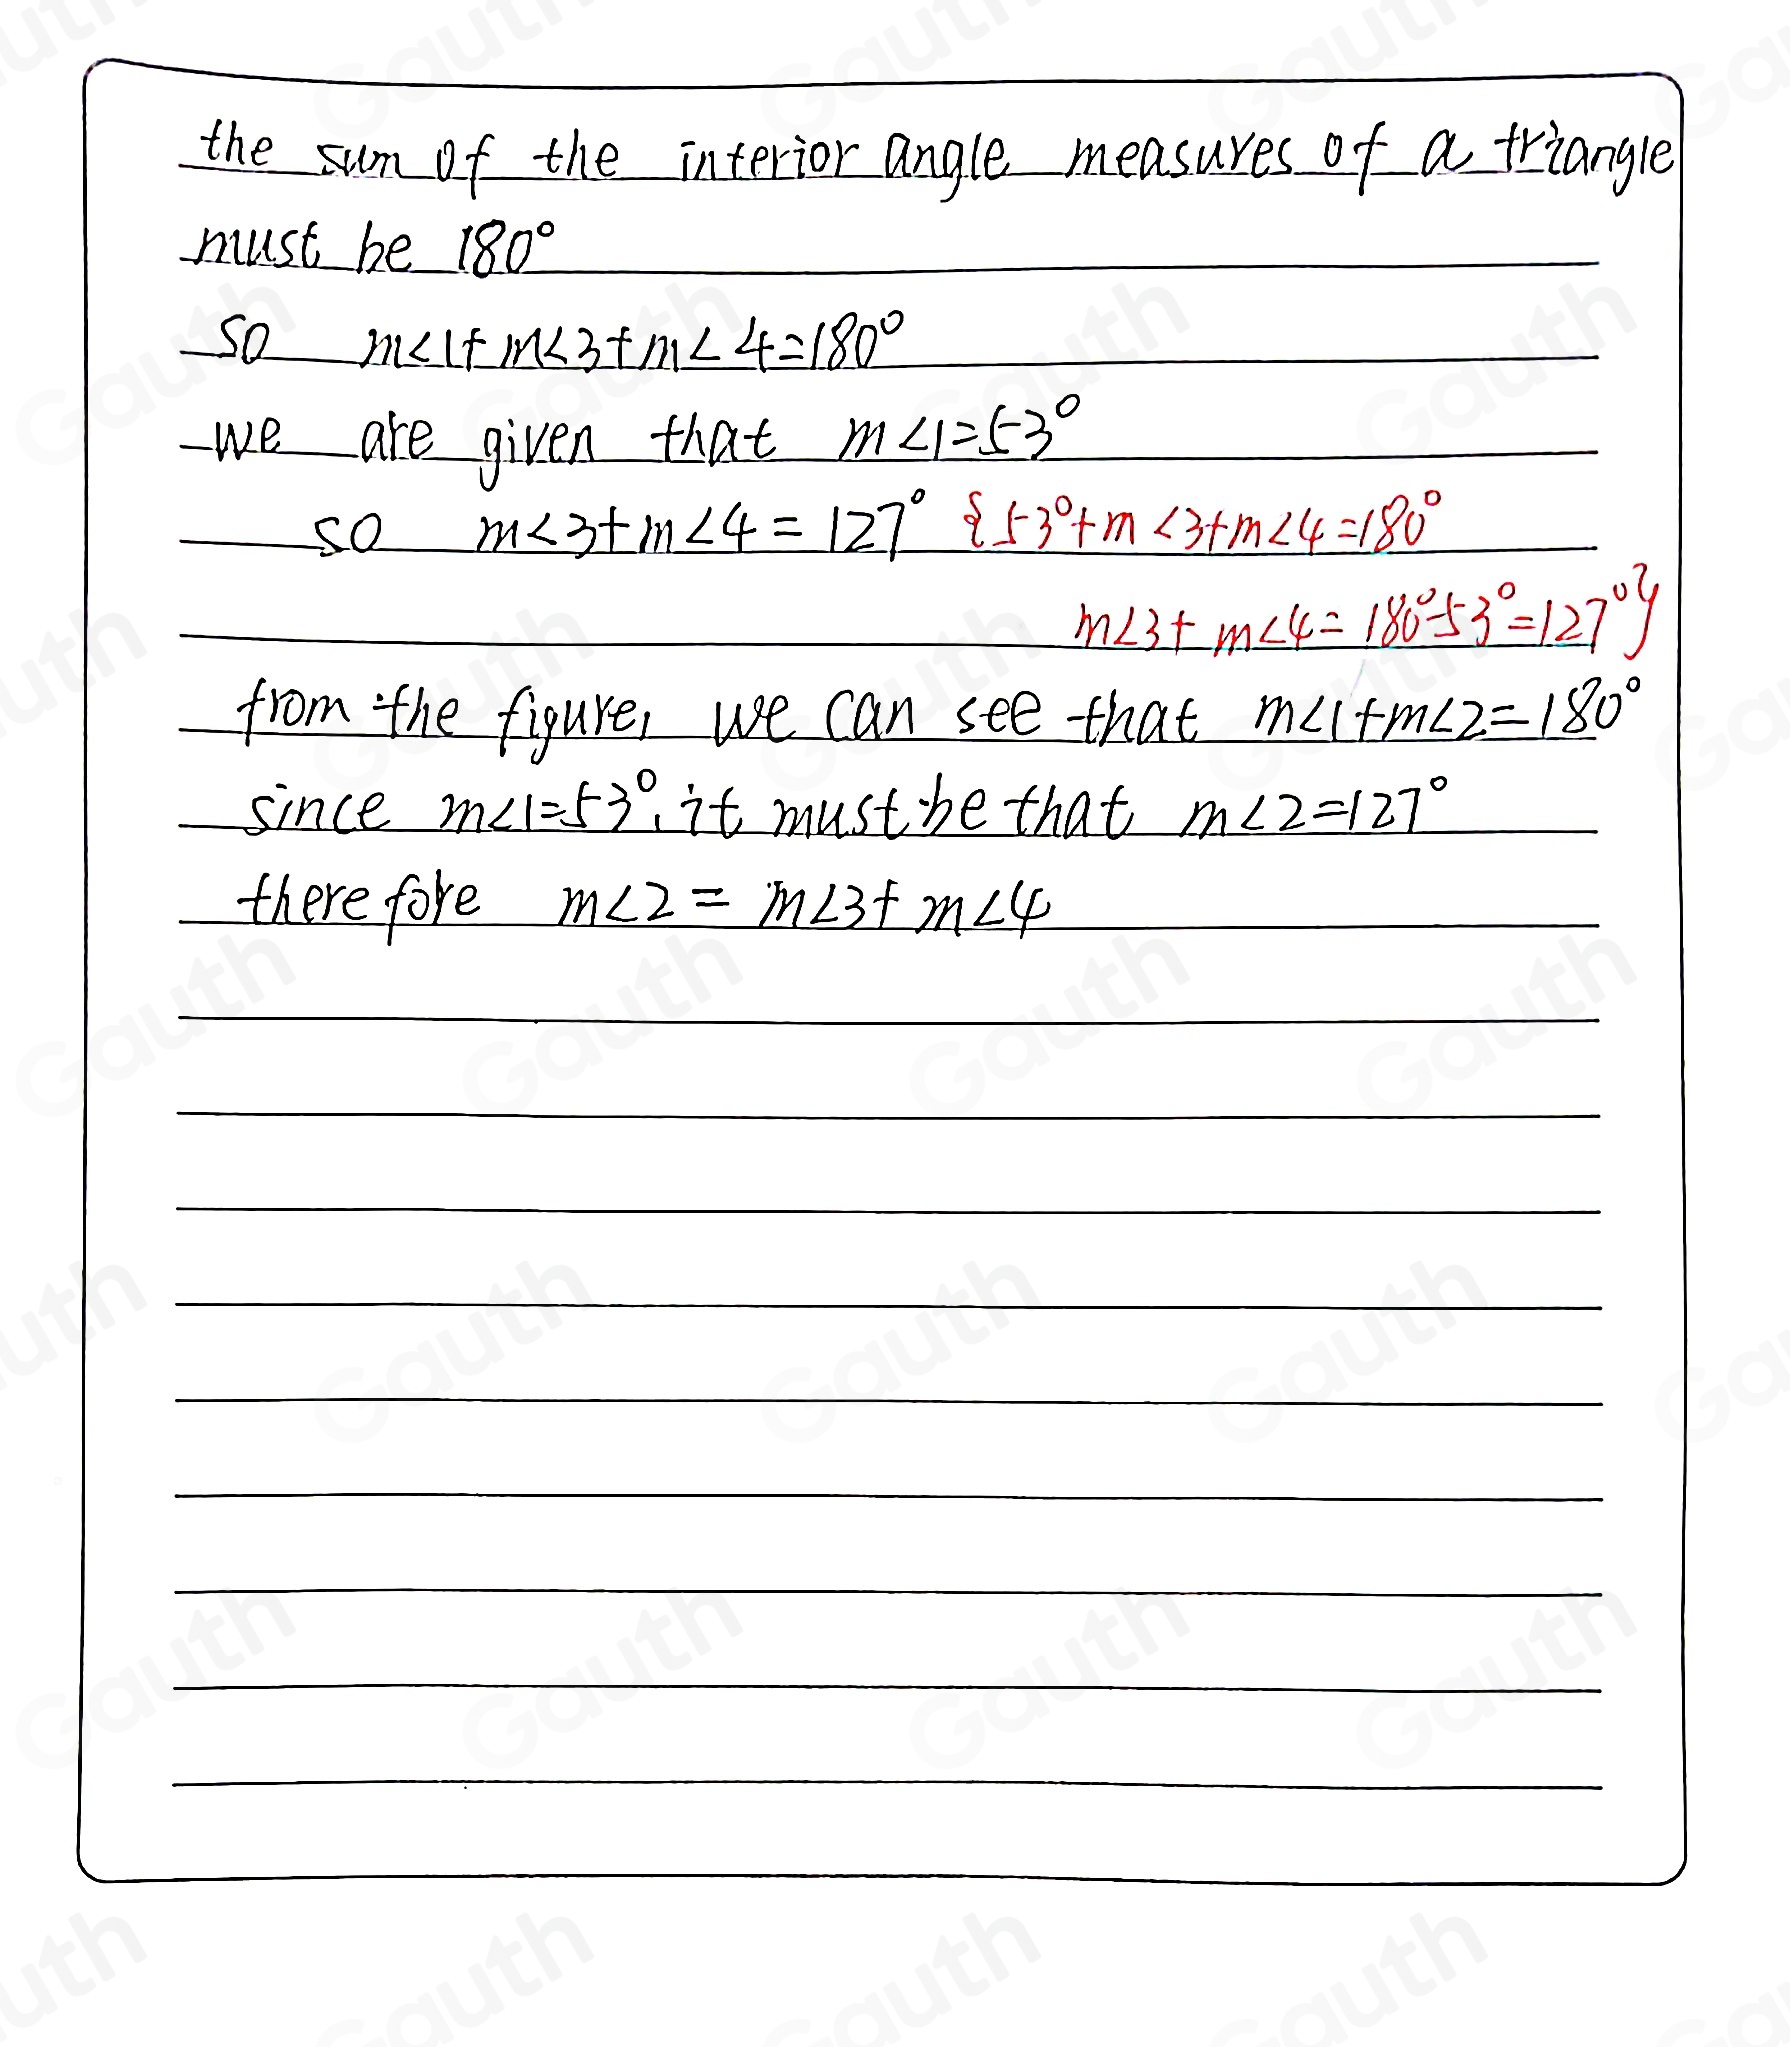 the sum of the interior angle measures of a triangle
must be 180°
so m<1+m<3+m<4=180°
we are given that m<1=53°
so m<3+m<4=127° {53°+m<3+m<4=180°
m<3+m<4=180°-53°=127°}
from the figure, we can see that m<1+m<2=180°
since m<1=53°, it must be that m<2=127°
therefore m<2=m<3+m<4
Gauth